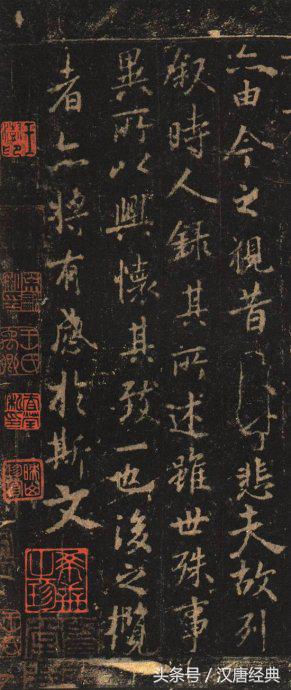 亦由今之視昔悲夫故列
叙時人錄其所述雖世殊事
異所以興懷其致一也後之攬
者亦將有感於斯文
头条号／汉唐经典